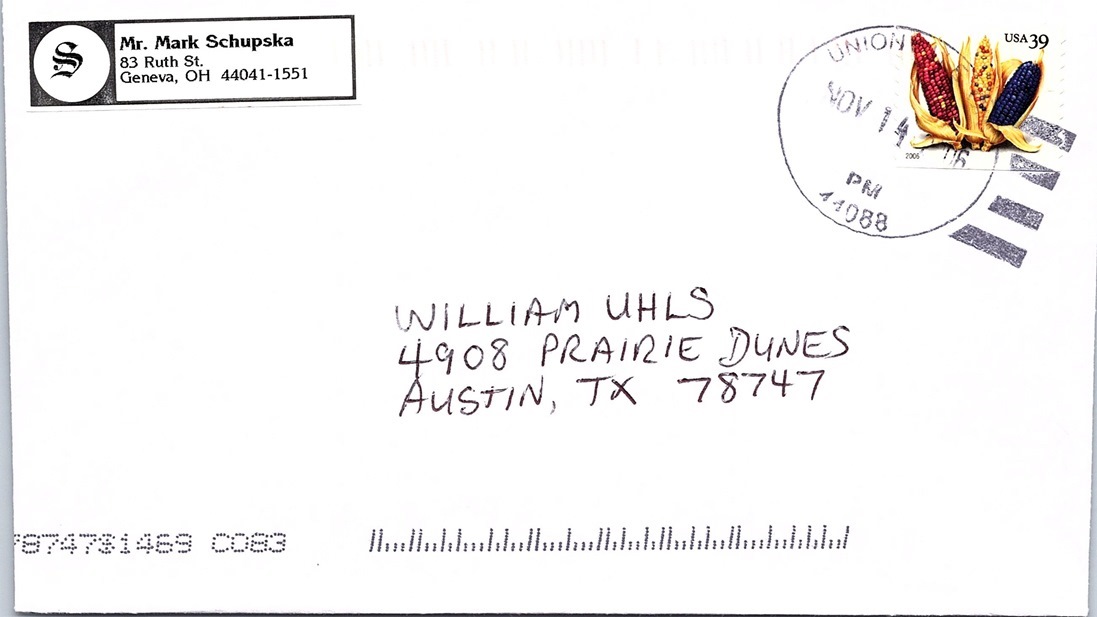 S
Mr. Mark Schupska
83 Ruth St.
Geneva, OH 44041-1551
UNION
NOV 14
06
PM
44088
USA 39
2006
WILLIAM UHLS
4908 PRAIRIE DUNES
AUSTIN, TX 78747
78747$1469 C083